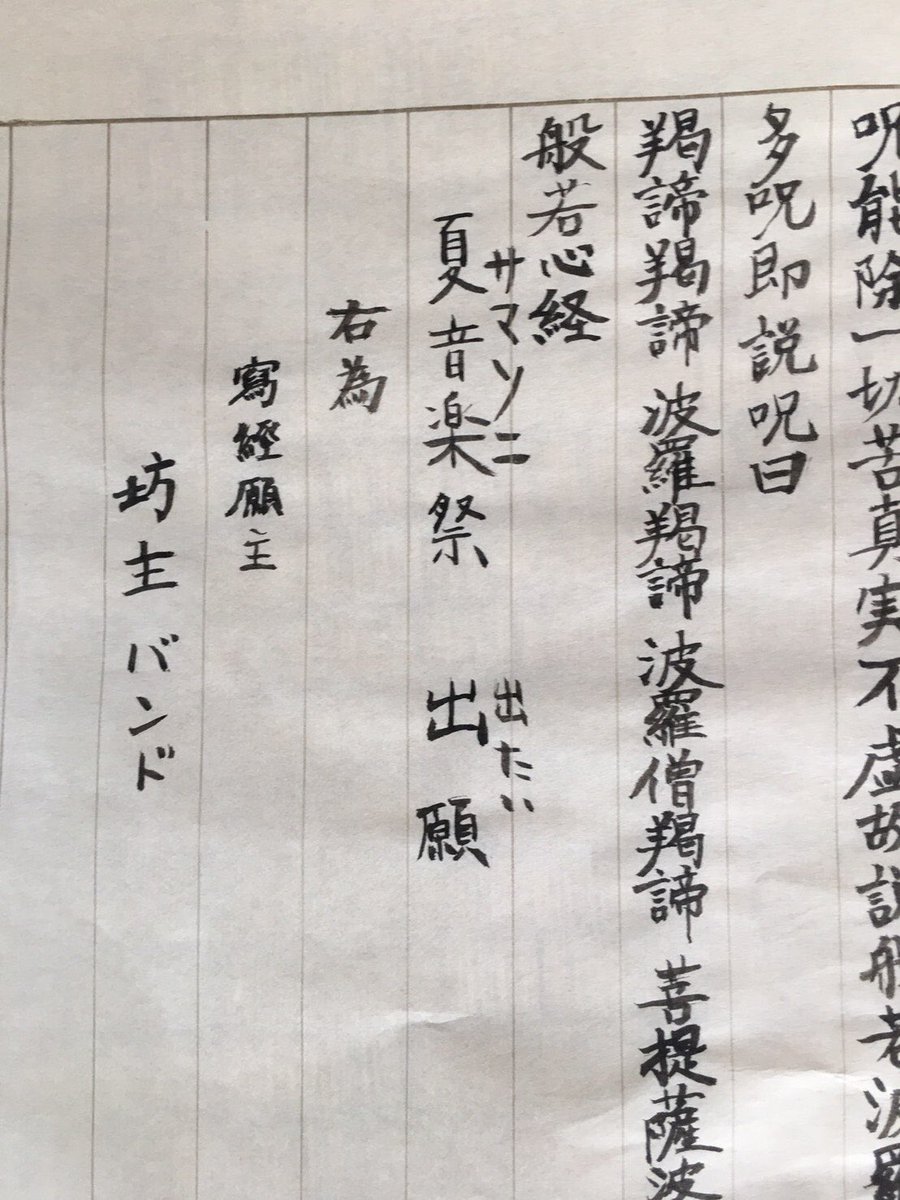 呪能除一切苦真実不虚故説般若波羅
多呪即説呪曰
羯諦羯諦 波羅羯諦 波羅僧羯諦 菩提薩波
般若心経
サマソニ 出たい
夏音楽祭 出願
右為
寫經願主
坊主バンド